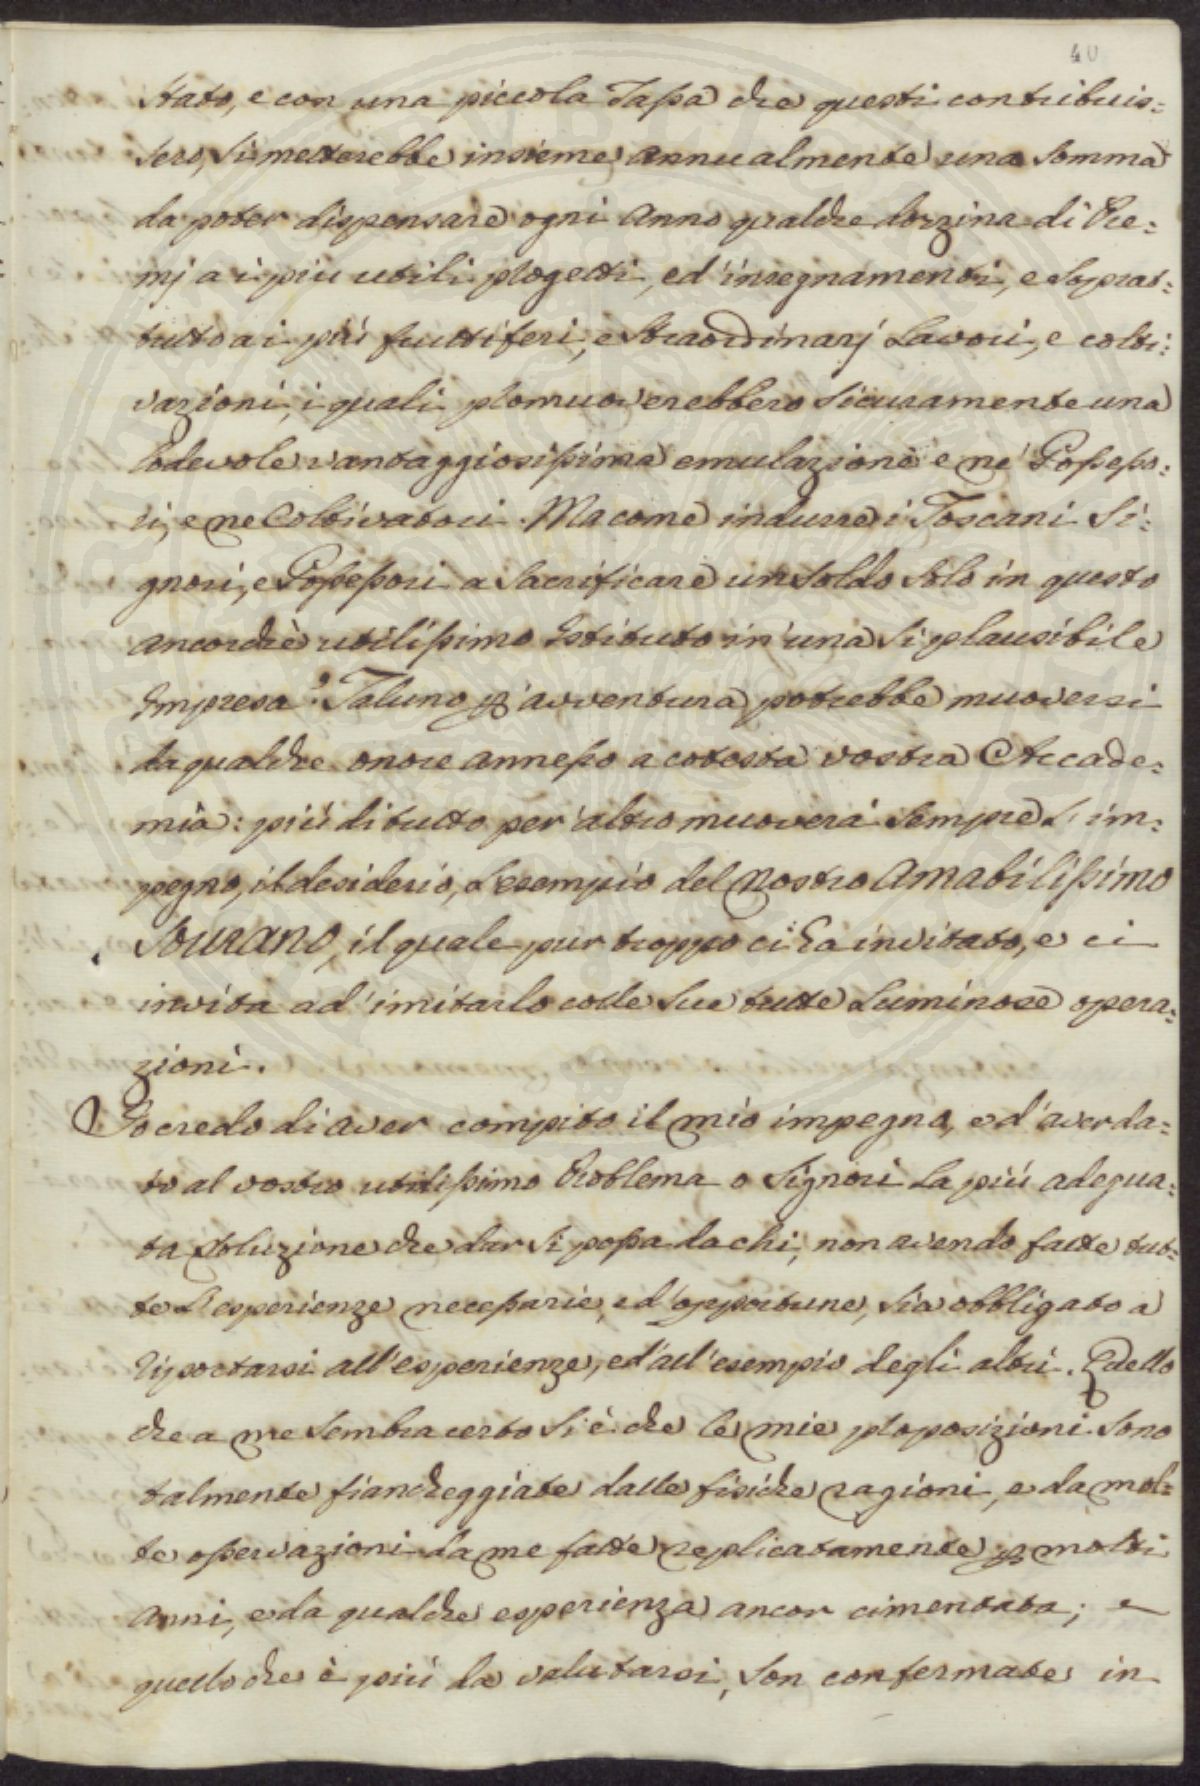 40
stato, e con una piccola Tassa che questi contribuis=
sero, si metterebbe insieme annualmente una somma
da poter dispensare ogni Anno qualche dozzina di Pre=
mj a i piu utili progetti, ed'insegnamenti, e soprat=
tutto a i più fruttiferi, e straordinarj Lavori, e colti=
vazioni, i quali promuoverebbero sicuramente una
lodevole vantaggiosissima emulazione e ne' Possesso=
ri, e ne Coltivatori. Ma come indurre i Toscani Si=
gnori, e Possessori a sacrificare un soldo solo in questo
ancorchè utilissimo Istituto in una sì plausibile
Impresa? Taluno p avventura potrebbe muoversi
da qualche onore annesso a cotesta vostra Accade=
mia: più di tutto per altro muoverà sempre L'im=
pegno, il desiderio, L'esempio del Nostro Amabilissimo
Sovrano, il quale pur troppo ci ha invitato, e ci
invita ad'imitarlo colle sue tutte Luminose opera=
zioni.
Io credo di aver compito il mio impegno, ed'aver da=
to al vostro utilissimo Problema o Signori La più adegua=
ta soluzione che dar si possa da chi, non avendo fatte tut=
te L'esperienze necessarie, ed'opportune, sia obbligato a
riportarsi all'esperienze, ed'all'esempio degli altri. Quello
che a me sembra certo si è che le mie proposizioni sono
talmente fiancheggiate dalle fisiche ragioni, e da mol=
te osservazioni da me fatte replicatamente p molti
Anni, e da qualche esperienza ancor cimentata; e
quello che è più da valutarsi, son confermate in